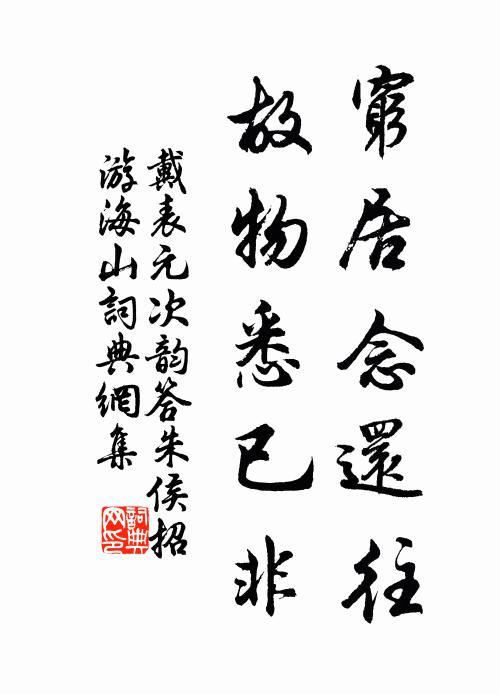 窮居念還往
故物悉已非
戴表元次韵答朱侯招
游海山詞典網集
詞典
网印